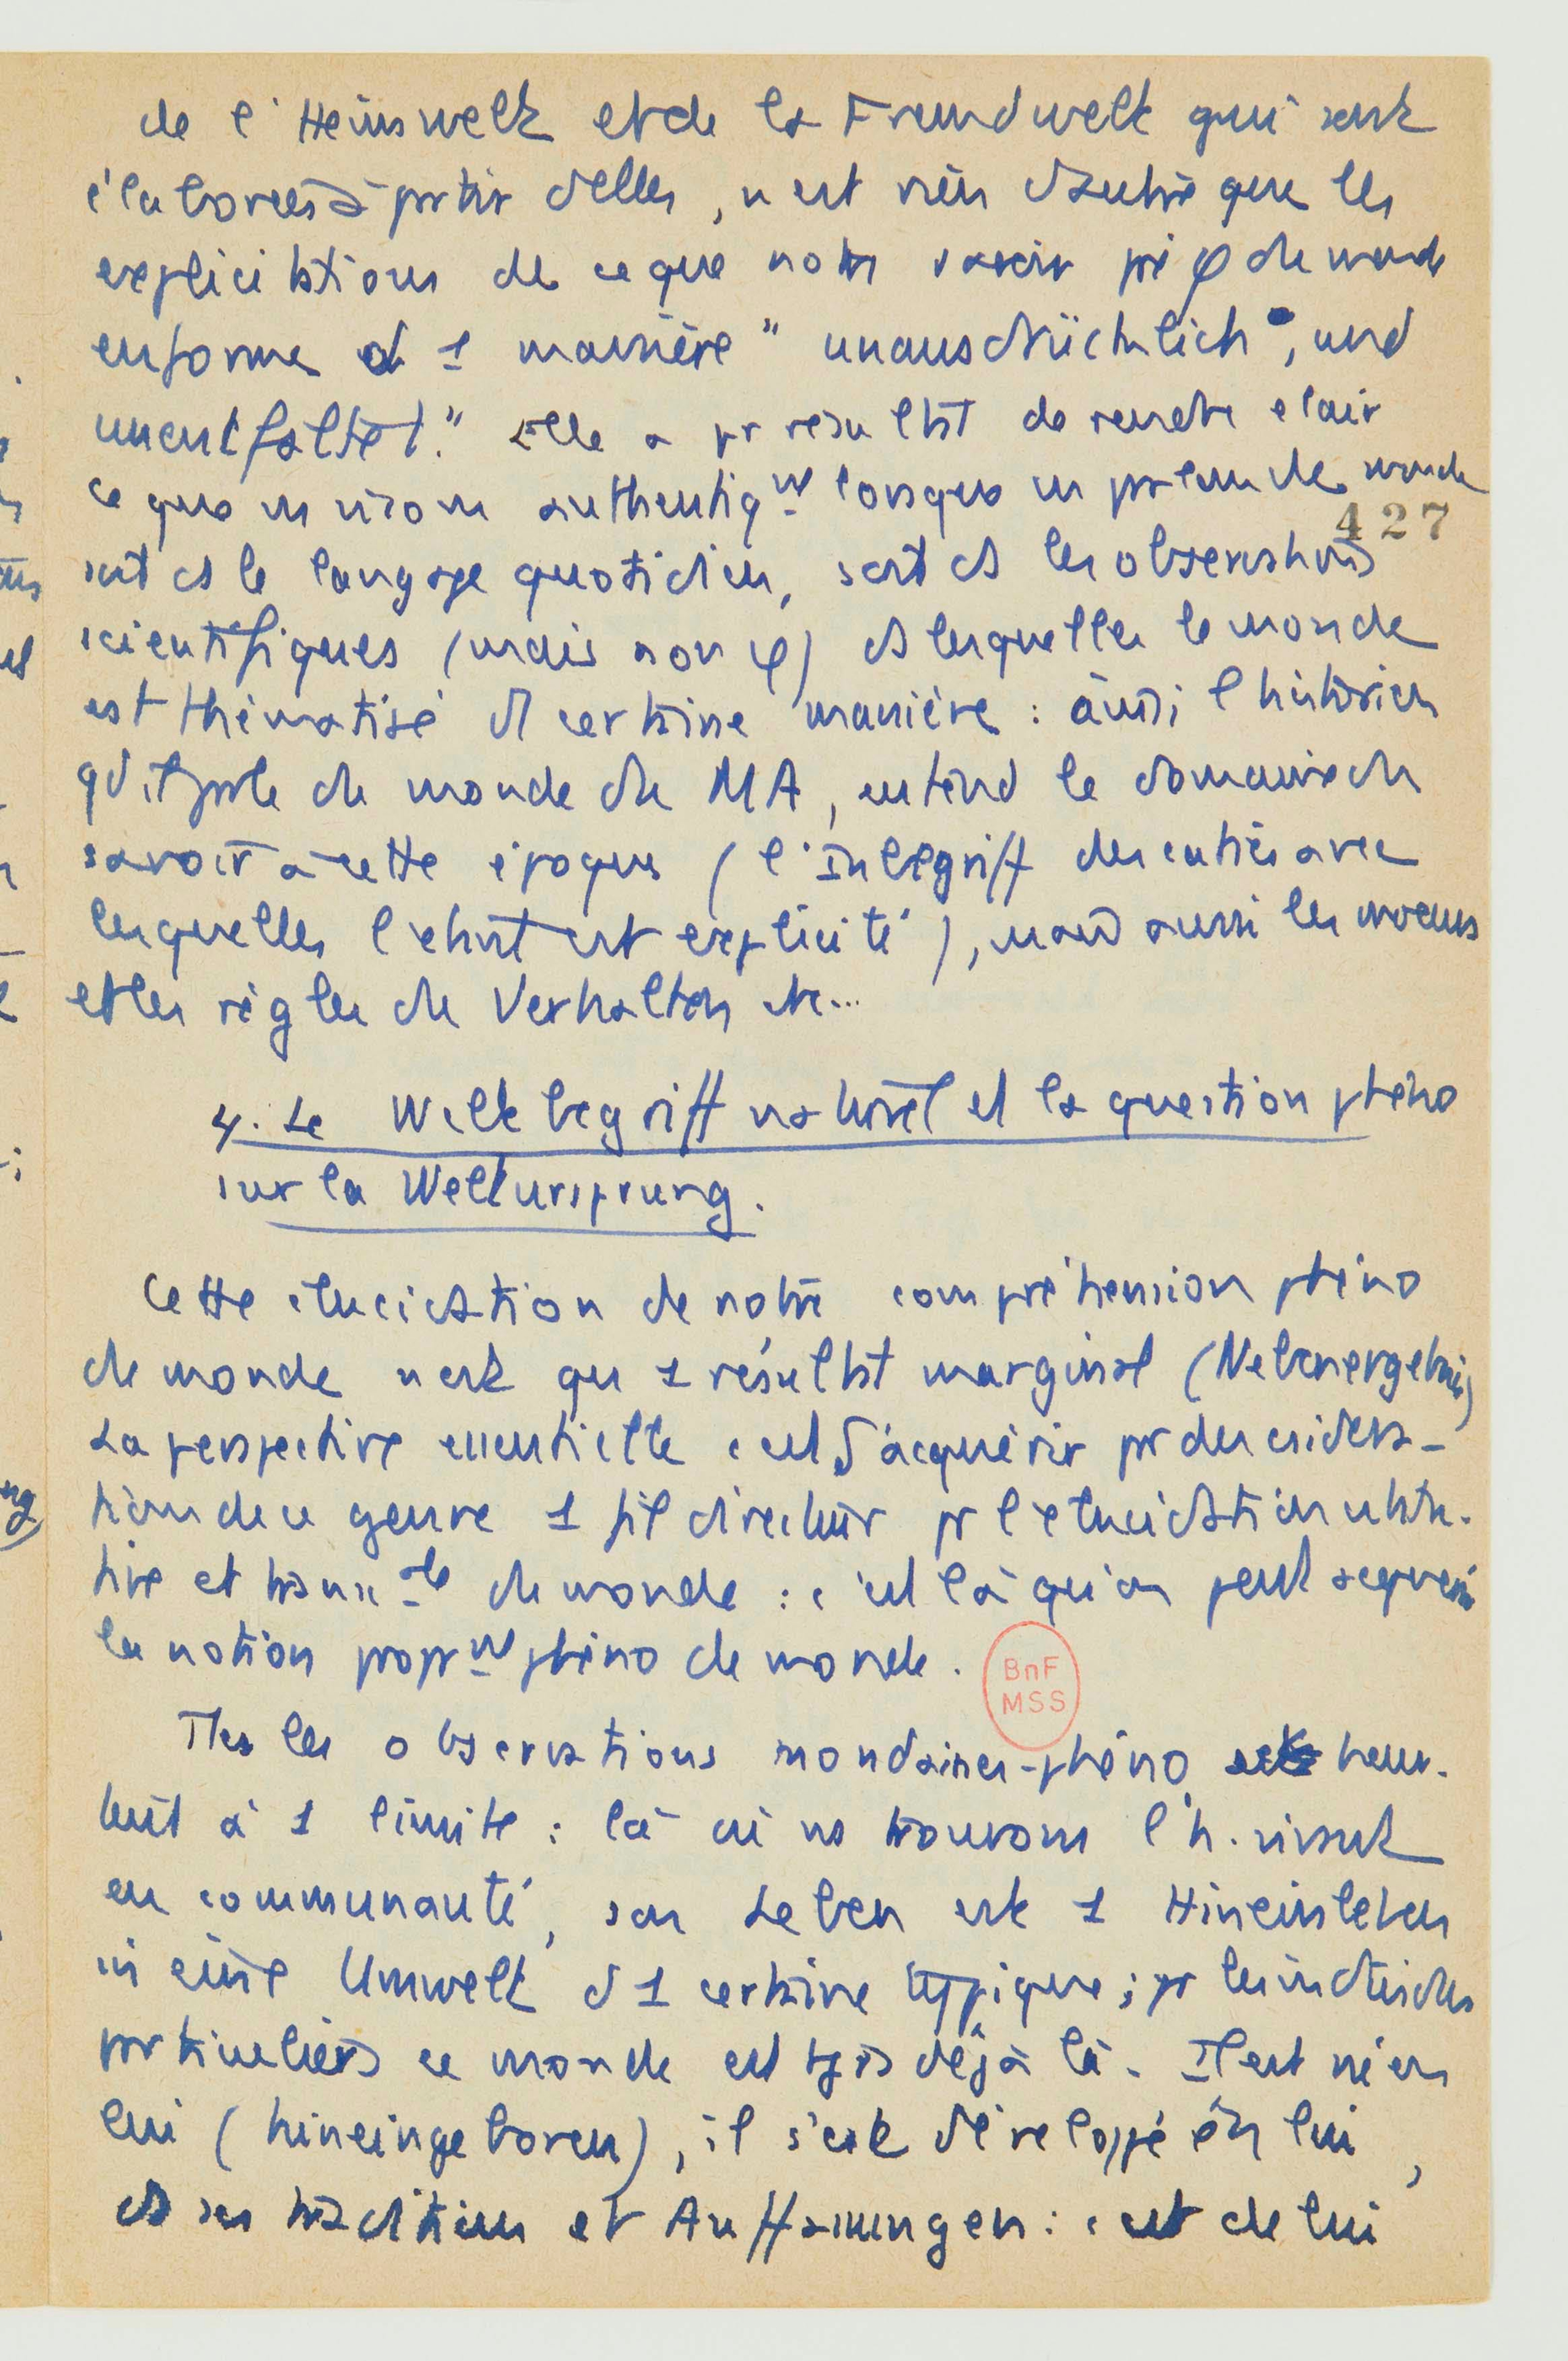 de l'Heimwelt et de la Fremdwelt qui sont
élaborées à partir d'elles, n'est rien d'autre que les
explicitations de ce que notre savoir pré φ du monde
enferme d 1 manière "unausdrücklich, und
unentfaltet." Elle a pr résultat de rendre clair
ce que ns visons authentiqt lorsque ns parlons de monde
427
soit ds le langage quotidien, soit ds les observations
scientifiques (mais non φ) ds lesquelles le monde
est thématisé d certaine manière : ainsi l'historien
qd il parle du monde du MA, entend le domaine du
savoir à cette époque (l'Inbegriff des caties avec
lesquelles l'existt est explicité), mais aussi les moeurs
et les règles du Verhalten etc...
4. Le Weltbegriff naturel et la question phéno
sur la Weltursprung.
Cette élucidation de notre compréhension phéno
du monde n'est qu 1 résultat marginal (Nebenergebnis)
La perspective essentielle c'est d'acquérir pr des considéra-
tions de ce genre 1 fil directeur pr l'élucidation
tive et transcale du monde : c'est là qu'on peut acquérir
la notion proprt phéno du monde.
BnF
MSS
Ttes les observations mondaines-phéno heur-
tent à 1 limite : là où ns trouvons l'h. vivant
en communauté, son Leben est 1 Hineinleben
in eine Umwelt d 1 certaine typique ; pr les individus
particuliers ce monde est tjrs déjà là. Il est né en
lui (hineingeboren), il s'est développé en lui,
ds ses traditions et Auffassungen : c'est de lui